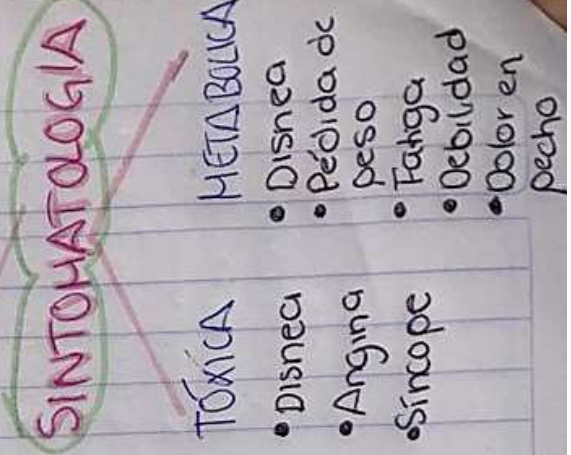 SINTOMATOLOGIA
TÓXICA
• Disnea
• Angina
• Síncope
METABOLICA
• Disnea
• Pédida de
peso
• Fatiga
• Debilidad
• Dolor en
pecho